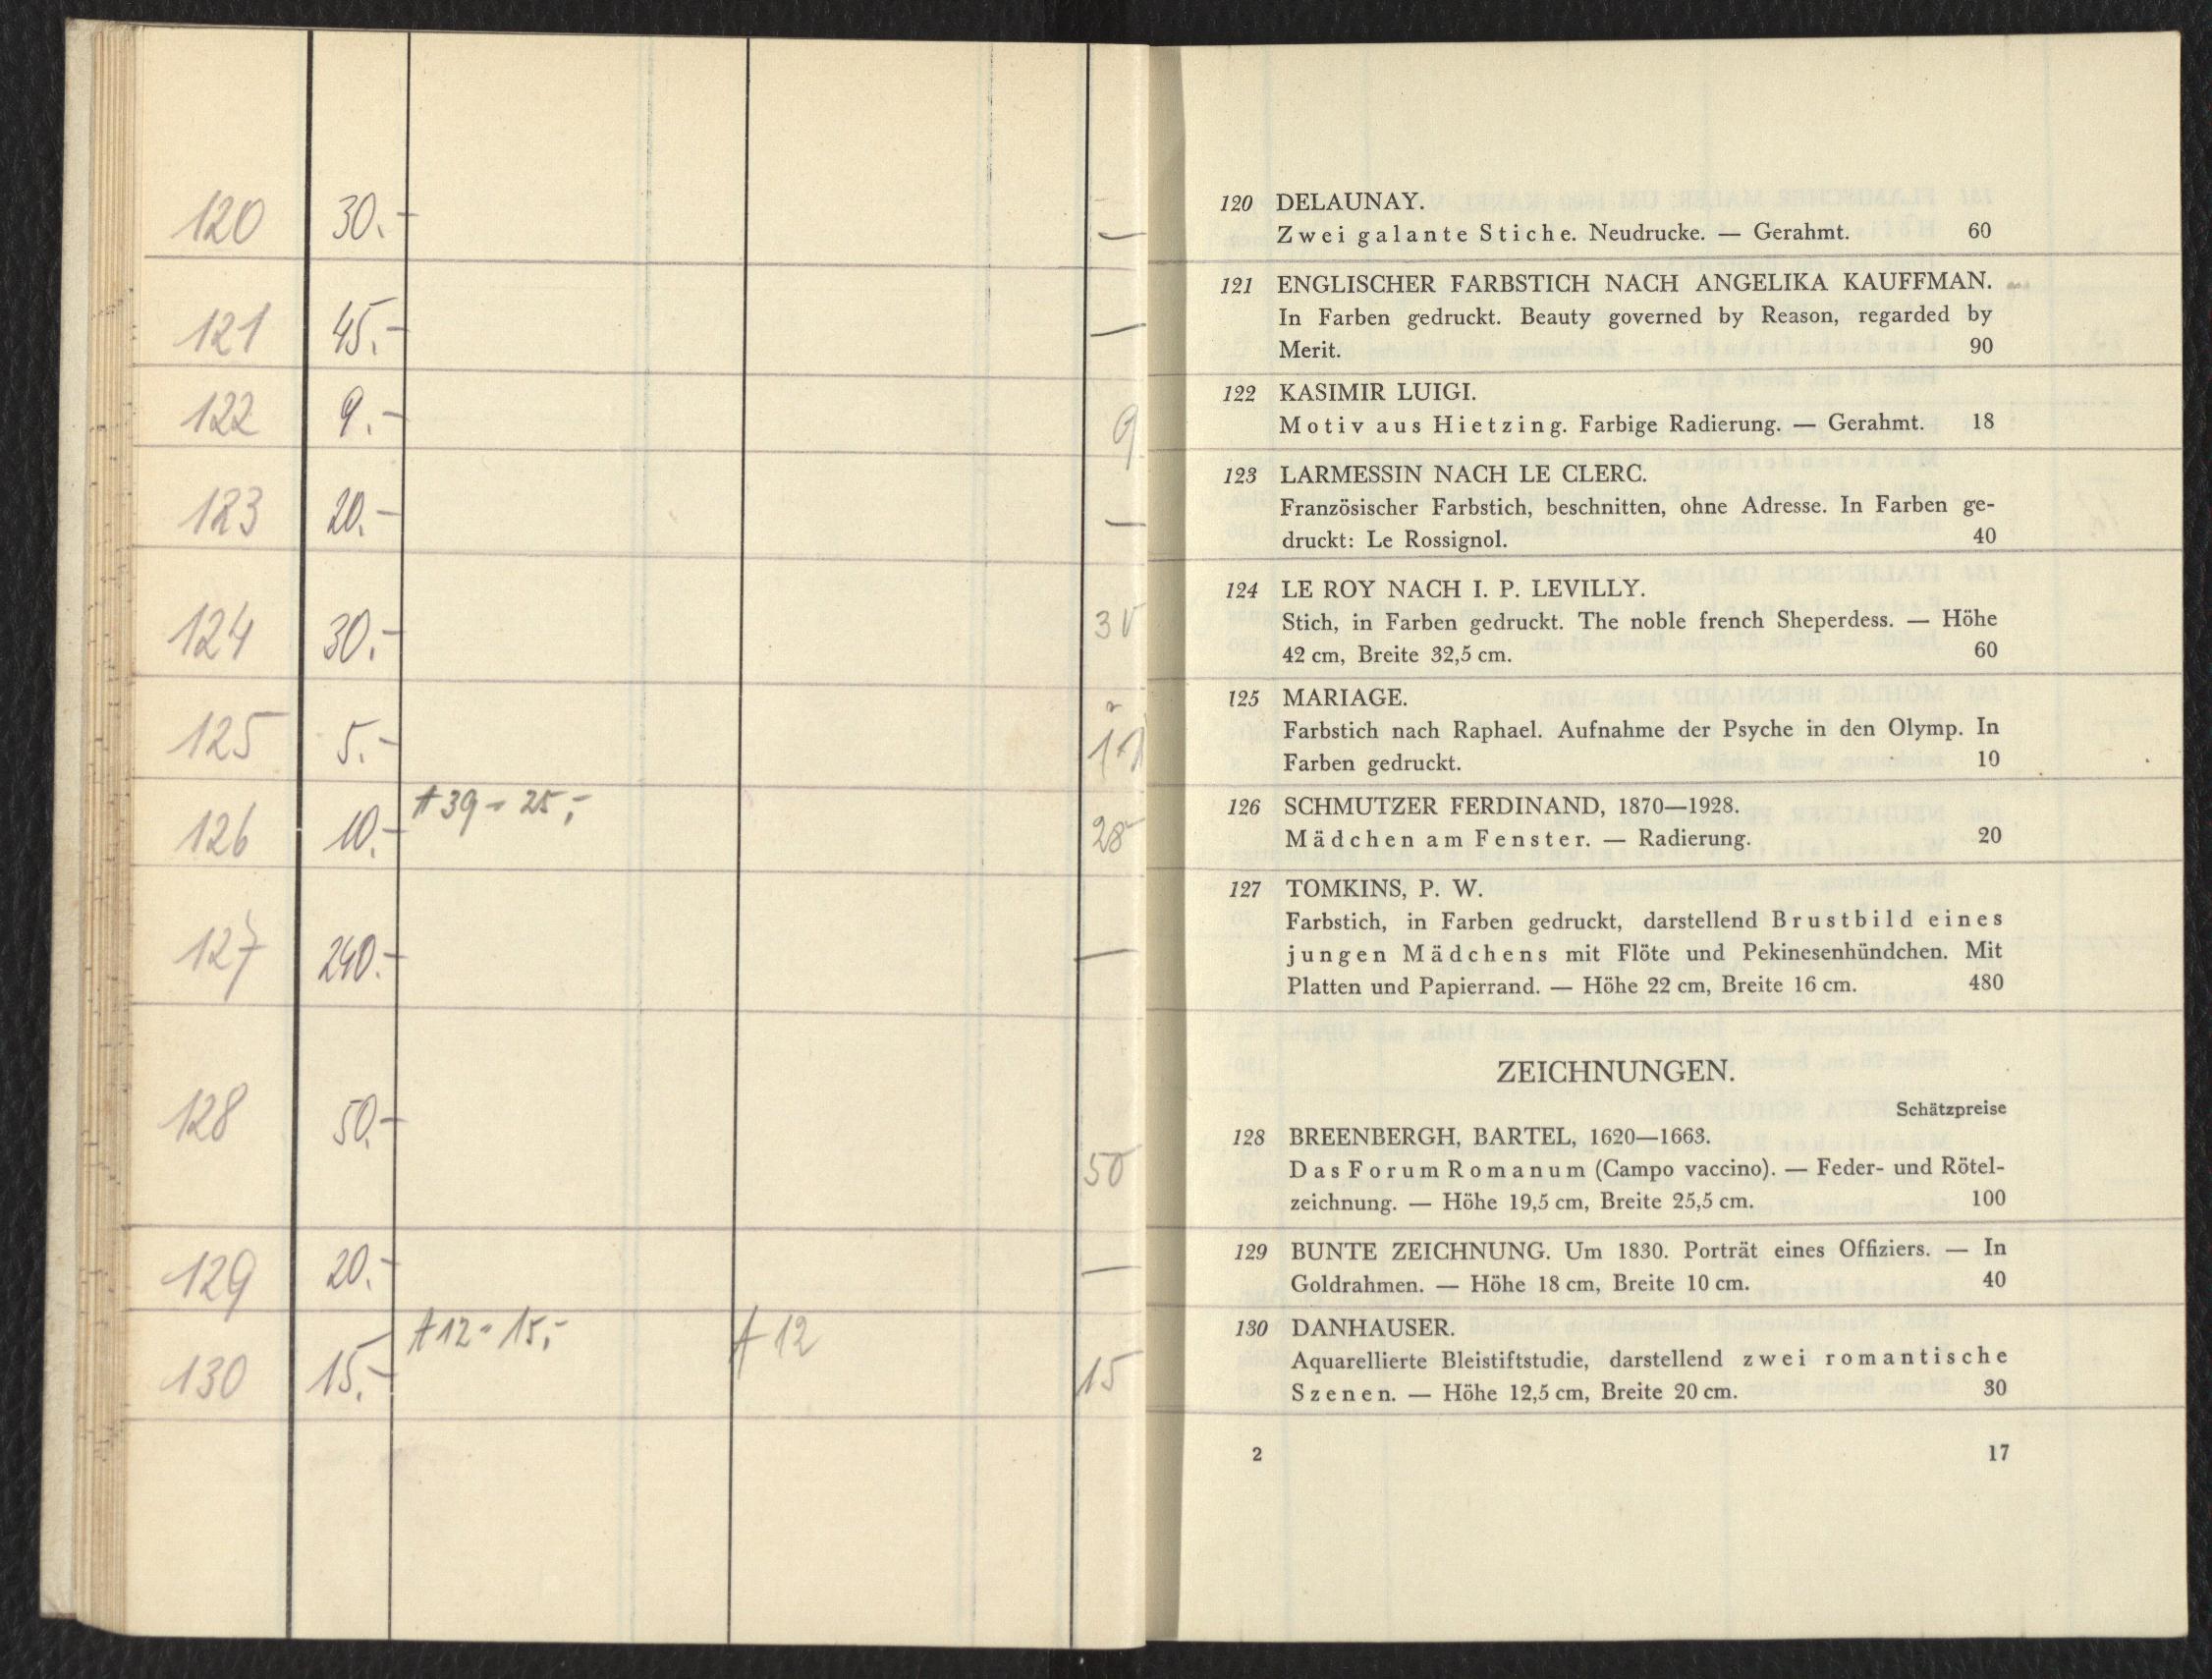 120 30.- —
121 45.- —
122 9.- 9
123 20.- —
124 30.- 30
125 5.-
126 10.- A 39 - 25,- 28
127 240.- —
128 50.- 50
129 20.- —
130 15.- A 12 - 15,- A 12 15
120 DELAUNAY.
Zwei galante Stiche. Neudrucke. — Gerahmt. 60
121 ENGLISCHER FARBSTICH NACH ANGELIKA KAUFFMAN.
In Farben gedruckt. Beauty governed by Reason, regarded by
Merit. 90
122 KASIMIR LUIGI.
Motiv aus Hietzing. Farbige Radierung. — Gerahmt. 18
123 LARMESSIN NACH LE CLERC.
Französischer Farbstich, beschnitten, ohne Adresse. In Farben ge-
druckt: Le Rossignol. 40
124 LE ROY NACH I. P. LEVILLY.
Stich, in Farben gedruckt. The noble french Sheperdess. — Höhe
42 cm, Breite 32,5 cm. 60
125 MARIAGE.
Farbstich nach Raphael. Aufnahme der Psyche in den Olymp. In
Farben gedruckt. 10
126 SCHMUTZER FERDINAND, 1870—1928.
Mädchen am Fenster. — Radierung. 20
127 TOMKINS, P. W.
Farbstich, in Farben gedruckt, darstellend Brustbild eines
jungen Mädchens mit Flöte und Pekinesenhündchen. Mit
Platten und Papierrand. — Höhe 22 cm, Breite 16 cm. 480
ZEICHNUNGEN.
Schätzpreise
128 BREENBERGH, BARTEL, 1620—1663.
Das Forum Romanum (Campo vaccino). — Feder- und Rötel-
zeichnung. — Höhe 19,5 cm, Breite 25,5 cm. 100
129 BUNTE ZEICHNUNG. Um 1830. Porträt eines Offiziers. — In
Goldrahmen. — Höhe 18 cm, Breite 10 cm. 40
130 DANHAUSER.
Aquarellierte Bleistiftstudie, darstellend zwei romantische
Szenen. — Höhe 12,5 cm, Breite 20 cm. 30
2 17